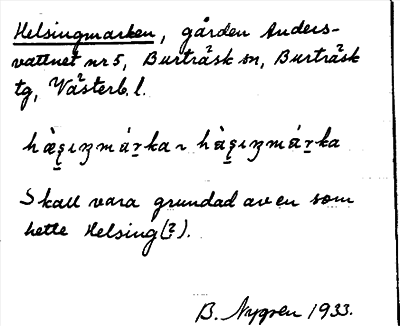 Helsingmarken, gården Anders-
vattnet nr 5, Burträsk sn, Burträsk
tg, Västerb. l.
hæ̀s̨ıŋmáṛka ~ hàs̨ıŋmáṛka
Skall vara grundad av en som
hette Helsing(?).
B. Nygren 1933.